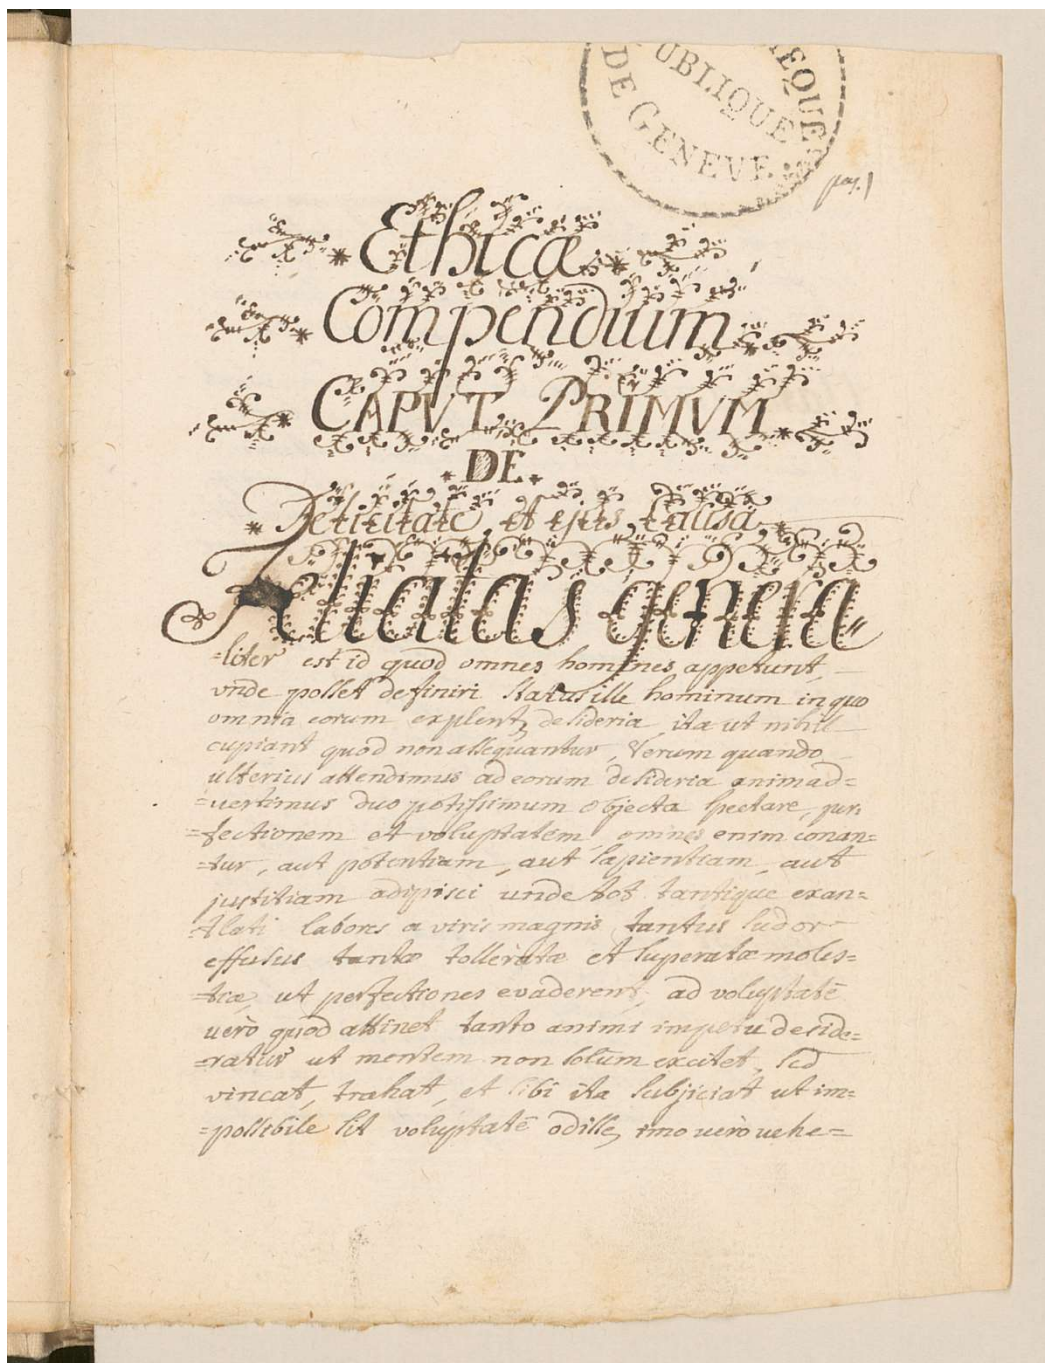 HEQUE
PUBLIQUE
DE GENEVE
pag. 1
Ethicæ
Compendium
CAPVT PRIMVM
DE
Felicitate et ejus Causa
Felicitas genera=
=liter est id quod omnes homines appetunt,
vnde posset definiri status ille hominum in quo
omnia eorum explent desideria, ita ut nihil
cupiant quod non assequantur, Verum quando
ulterius attendimus ad eorum desideria animad=
=vertimus duo potissimum objecta spectare, per=
=fectionem et voluptatem, omnes enim conan=
=tur, aut potentiam, aut sapientiam, aut
justitiam adipisci unde tot tantique exan=
=tlati labores a viris magnis tantus sudor
effusus tantæ tolleratæ et superatæ moles=
=tiæ, ut perfectiones evaderent, ad voluptatē
uerò quod attinet tanto animi impetu deside=
=ratur ut mentem non solum excitet, sed
vincat, trahat, et sibi ita subjiciat ut im=
=possibile sit voluptatē odisse, imo uerò vehe=